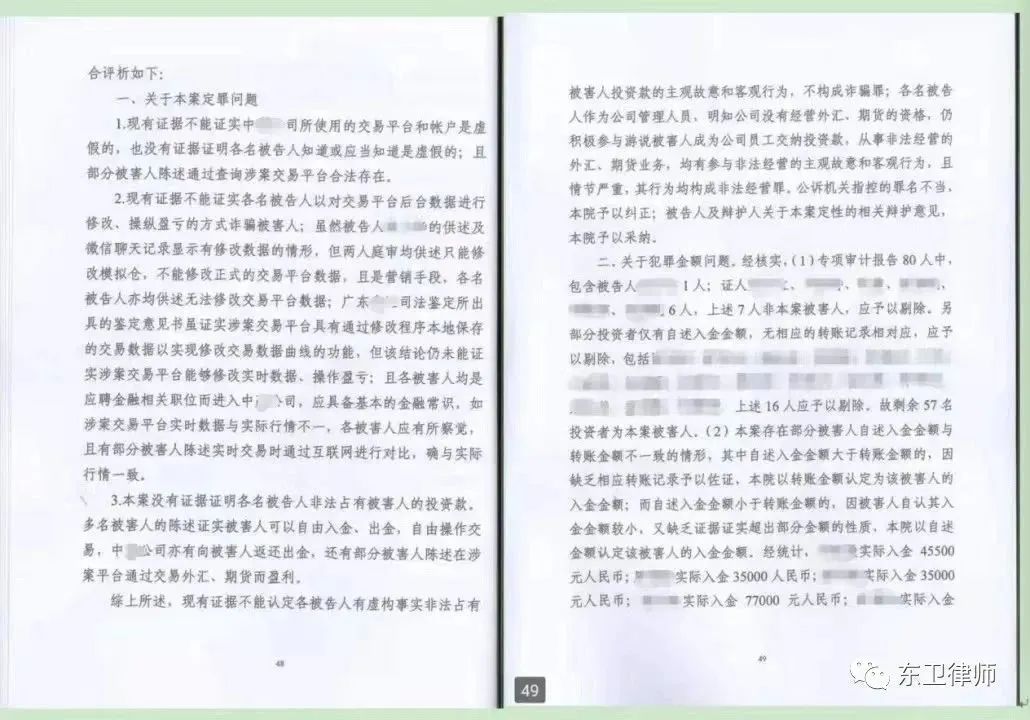 合评析如下：
一、关于本案定罪问题
1.现有证据不能证实中 司所使用的交易平台和帐户是虚
假的，也没有证据证明各名被告人知道或应当知道是虚假的；且
部分被害人陈述通过查询涉案交易平台合法存在。
2.现有证据不能证实各名被告人以对交易平台后台数据进行
修改、操纵盈亏的方式诈骗被害人；虽然被告人 的供述及
微信聊天记录显示有修改数据的情形，但两人庭审均供述只能修
改模拟仓，不能修改正式的交易平台数据，且是营销手段，各名
被告人亦均供述无法修改交易平台数据；广东 司法鉴定所出
具的鉴定意见书虽证实涉案交易平台具有通过修改程序本地保存
的交易数据以实现修改交易数据曲线的功能，但该结论仍未能证
实涉案交易平台能够修改实时数据、操作盈亏；且各被害人均是
应聘金融相关职位而进入中 公司，应具备基本的金融常识，如
涉案交易平台实时数据与实际行情不一，各被害人应有所察觉，
且有部分被害人陈述实时交易时通过互联网进行对比，确与实际
行情一致。
3.本案没有证据证明各名被告人非法占有被害人的投资款。
多名被害人的陈述证实被害人可以自由入金、出金，自由操作交
易，中 公司亦有向被害人返还出金，还有部分被害人陈述在涉
案平台通过交易外汇、期货而盈利。
综上所述，现有证据不能认定各被告人有虚构事实非法占有
48
被害人投资款的主观故意和客观行为，不构成诈骗罪；各名被告
人作为公司管理人员，明知公司没有经营外汇、期货的资格，仍
积极参与游说被害人成为公司员工交纳投资款，从事非法经营的
外汇、期货业务，均有参与非法经营的主观故意和客观行为，且
情节严重，其行为均构成非法经营罪。公诉机关指控的罪名不当，
本院予以纠正；被告人及辩护人关于本案定性的相关辩护意见，
本院予以采纳。
二、关于犯罪金额问题。经核实，（1）专项审计报告 80 人中，
包含被告人 1 人；证人 、 、 、 、
、 6 人，上述 7 人非本案被害人，应予以剔除。另
部分投资者仅有自述入金金额，无相应的转账记录相对应，应予
以剔除，包括
上述 16 人应予以剔除。故剩余 57 名
投资者为本案被害人。（2）本案存在部分被害人自述入金金额与
转账金额不一致的情形，其中自述入金金额大于转账金额的，因
缺乏相应转账记录予以佐证，本院以转账金额认定为该被害人的
入金金额；而自述入金金额小于转账金额的，因被害人自认其入
金金额较小，又缺乏证据证实超出部分金额的性质，本院以自述
金额认定该被害人的入金金额。经统计， 实际入金 45500
元人民币； 实际入金 35000 人民币； 实际入金 35000
元人民币； 实际入金 77000 元人民币； 实际入金
49
49
东卫律师